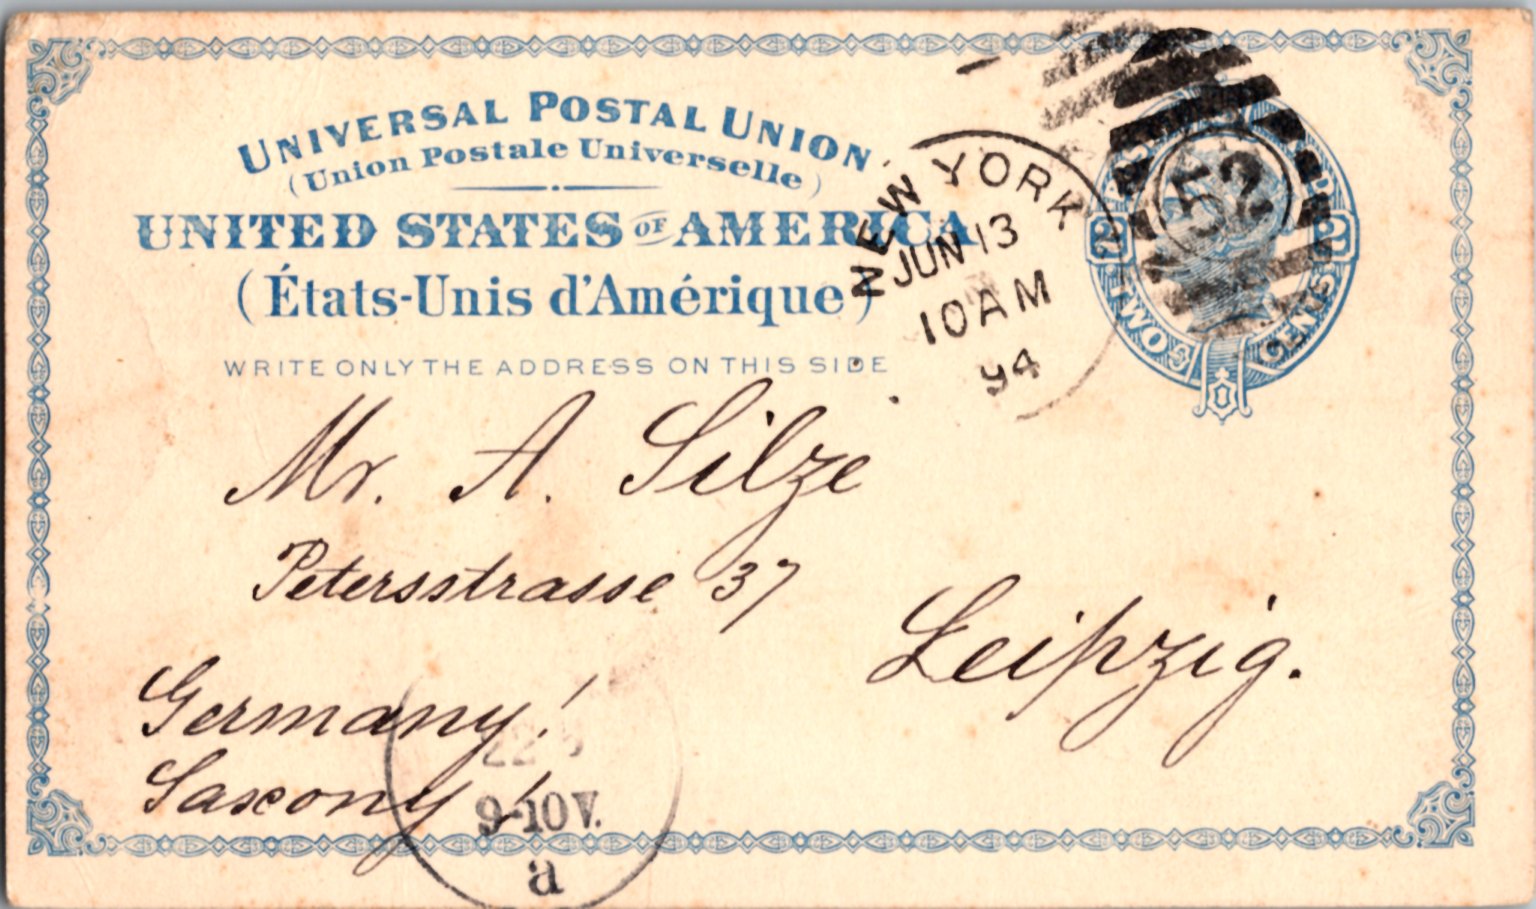 UNIVERSAL POSTAL UNION
(Union Postale Universelle)
UNITED STATES OF AMERICA
(États-Unis d'Amérique)
WRITE ONLY THE ADDRESS ON THIS SIDE
NEW YORK
JUN 13
10 AM
94
52
2 2
TWO CENTS
Mr. A. Silze
Petersstrasse 37
Leipzig.
Germany!
Saxony!
9-10V.
a